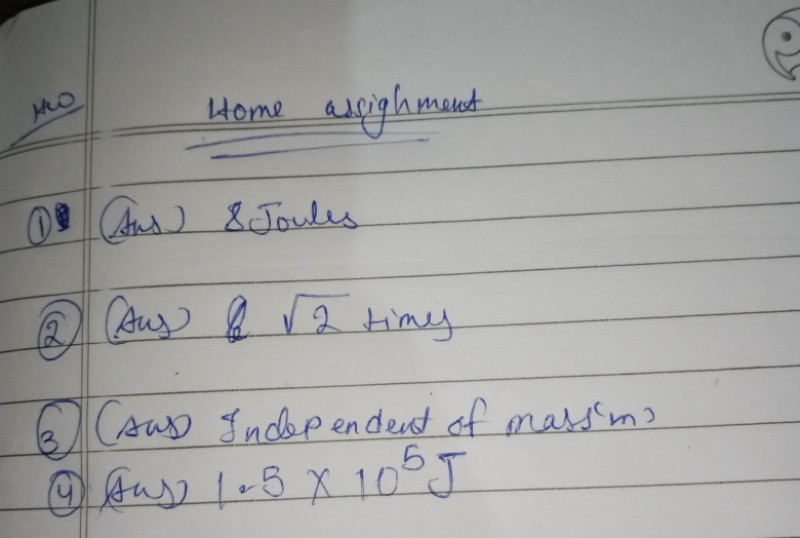 HW
Home assighment
① (Ans) 8 Joules
② (Ans) √2 times
③ (Ans) Independent of mass 'm'
④ (Ans) 1.5 × 10⁵ J